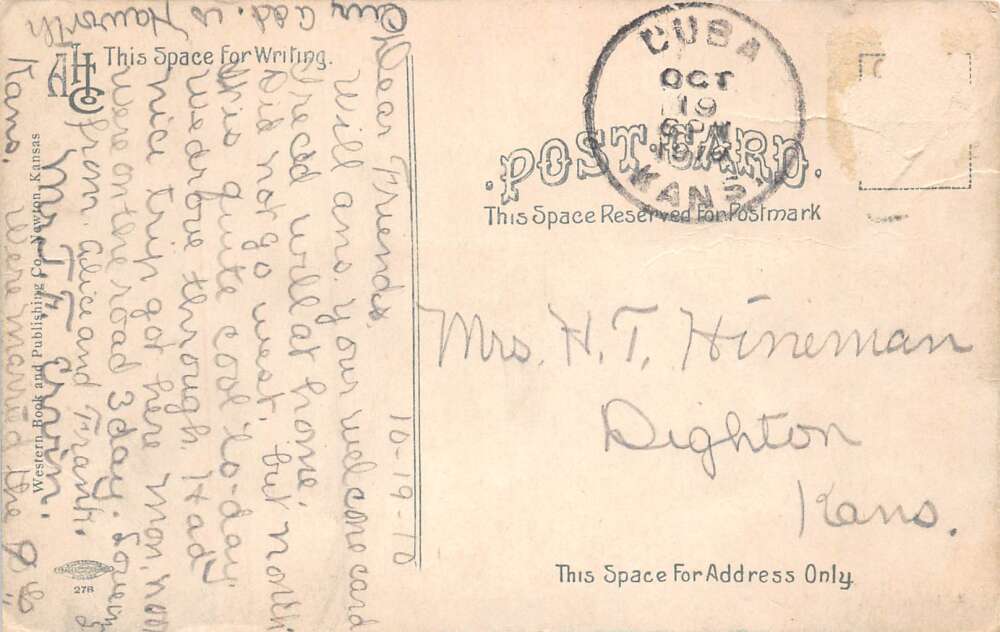 This Space For Writing.
AHCo
Western Book and Publishing Co., Newton, Kansas
278
CUBA
OCT
19
6 PM
1910
KANS.
POST CARD.
This Space Reserved For Postmark
Mrs. H. T. Hineman
Dighton
Kans.
This Space For Address Only.
10-19-10
Dear Friends,
Will ans. your welcome card
I recd will at home.
Did not go west, but north
this quite cool to-day.
we drove through. Had
nice trip got here Mon. noon
were on the road 3 day.
From Alice and Frank.
Mr. J. F.
Our add. is Haworth
Kans. Were married the 8